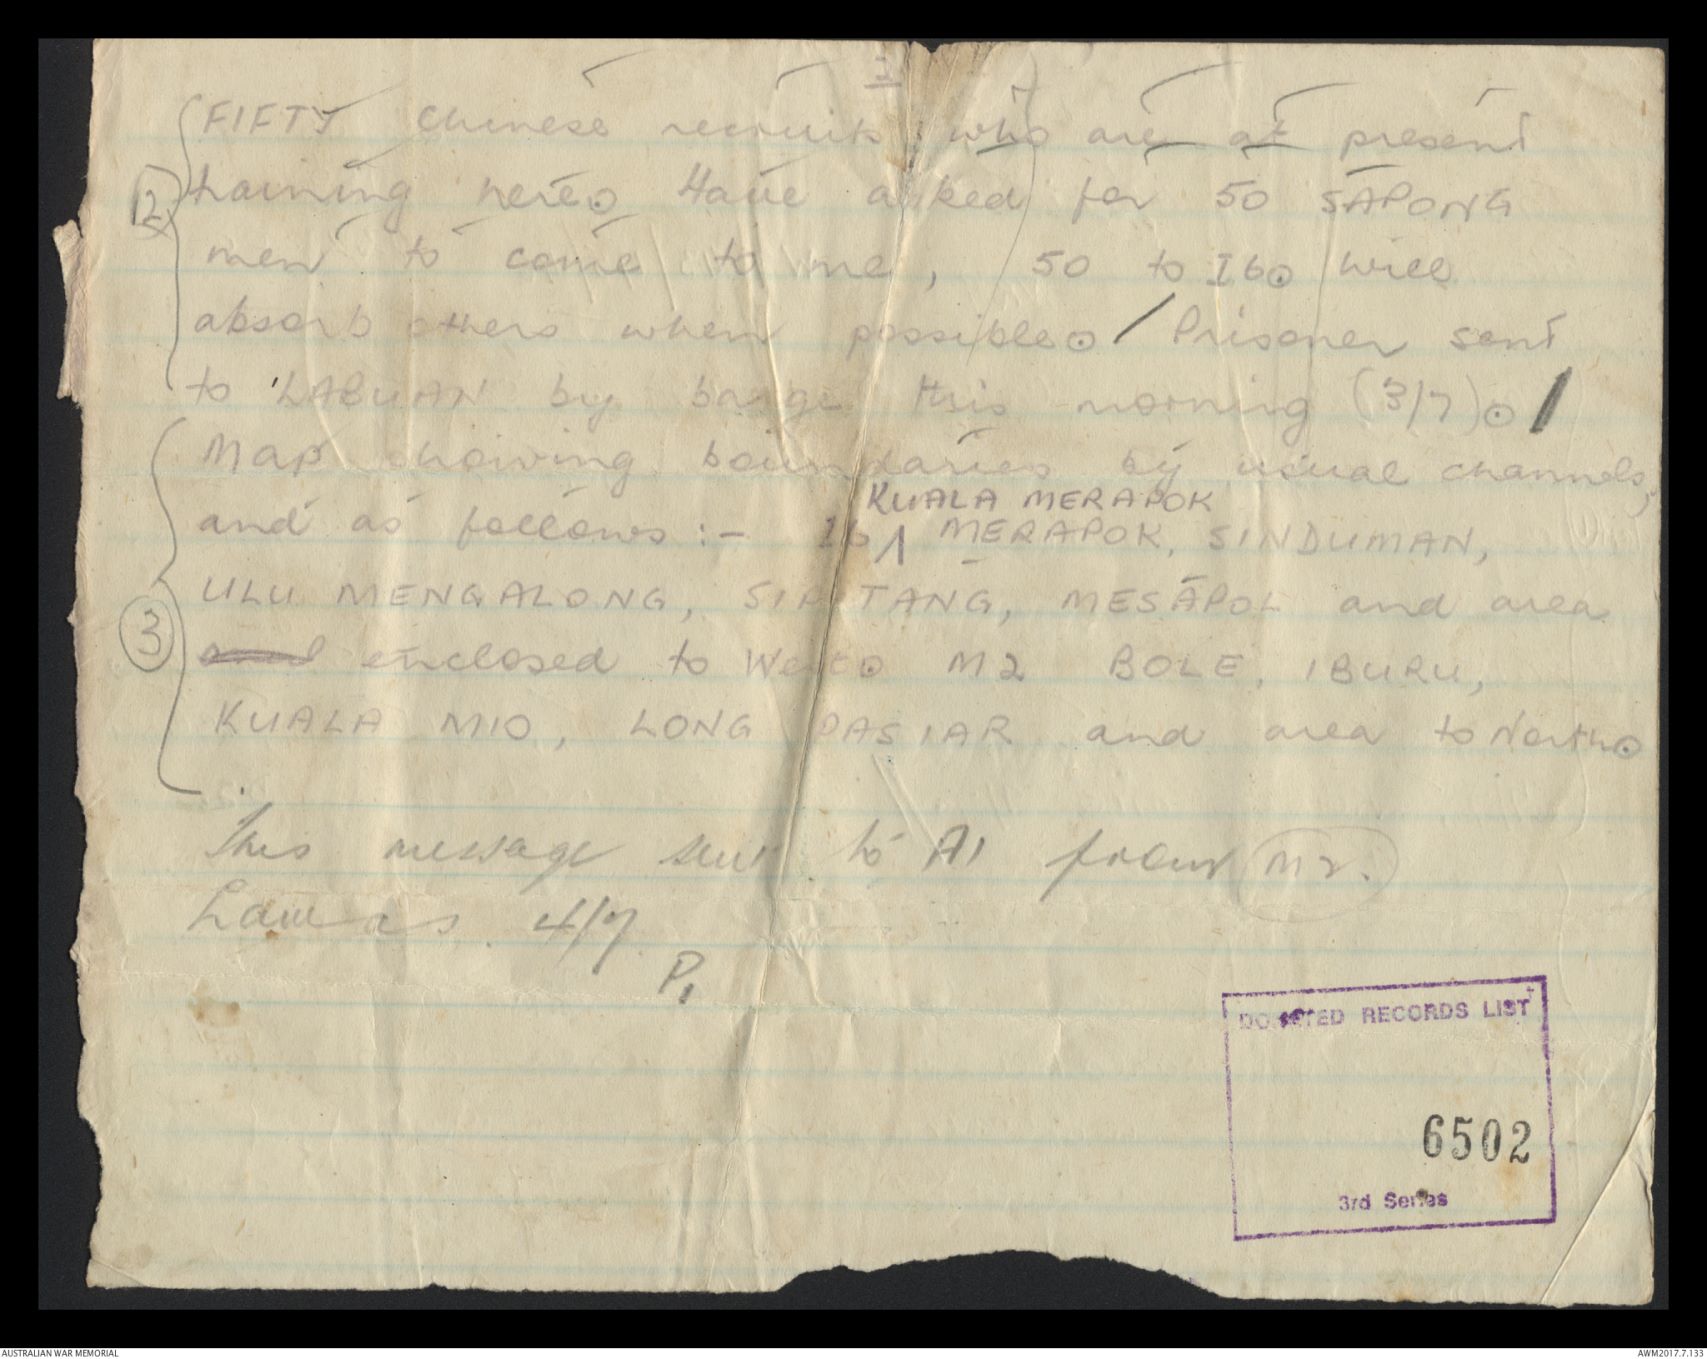 2
FIFTY Chinese recruits who are at present
2 training here⊙ Have asked for 50 SAPONG
men to come to me, 50 to I6⊙ Will
absorb others when possible⊙/ Prisoner sent
to LABUAN by barge this morning (3/7)⊙/
Map showing boundaries by usual channels,
KUALA MERAPOK
and as follows :- I6 /\ MERAPOK, SINDUMAN,
ULU MENGALONG, SIPITANG, MESAPOL and area
3 and enclosed to West⊙ M2 BOLE, IBURU,
KUALA MIO, LONG PASIAR and area to North⊙
This message sent to A1 from M2.
Lawas. 4/7
P1
DONATED RECORDS LIST
6502
3rd Series
AUSTRALIAN WAR MEMORIAL
AWM2017.7.133